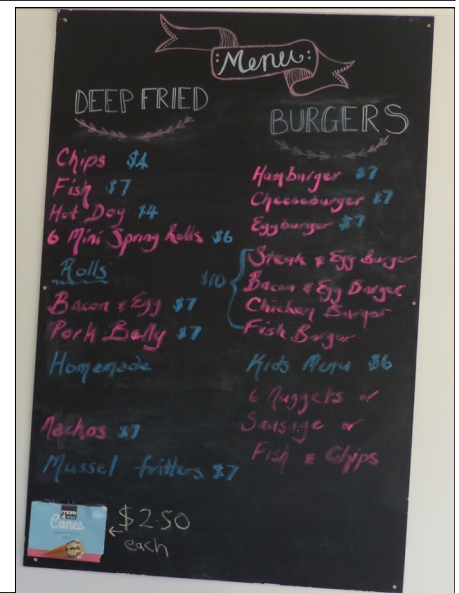 Menu
DEEP FRIED
Chips $4
Fish $7
Hot Dog $4
6 Mini Spring Rolls $6
Rolls
Bacon & Egg $7
Pork Belly $7
Homemade
Nachos $7
Mussel fritters $7
BURGERS
Hamburger $7
Cheeseburger $7
Eggburger $7
$10
Steak & Egg Burger
Bacon & Egg Burger
Chicken Burger
Fish Burger
Kids Menu $6
6 Nuggets or
Sausage or
Fish & Chips
Cones
$2.50
each